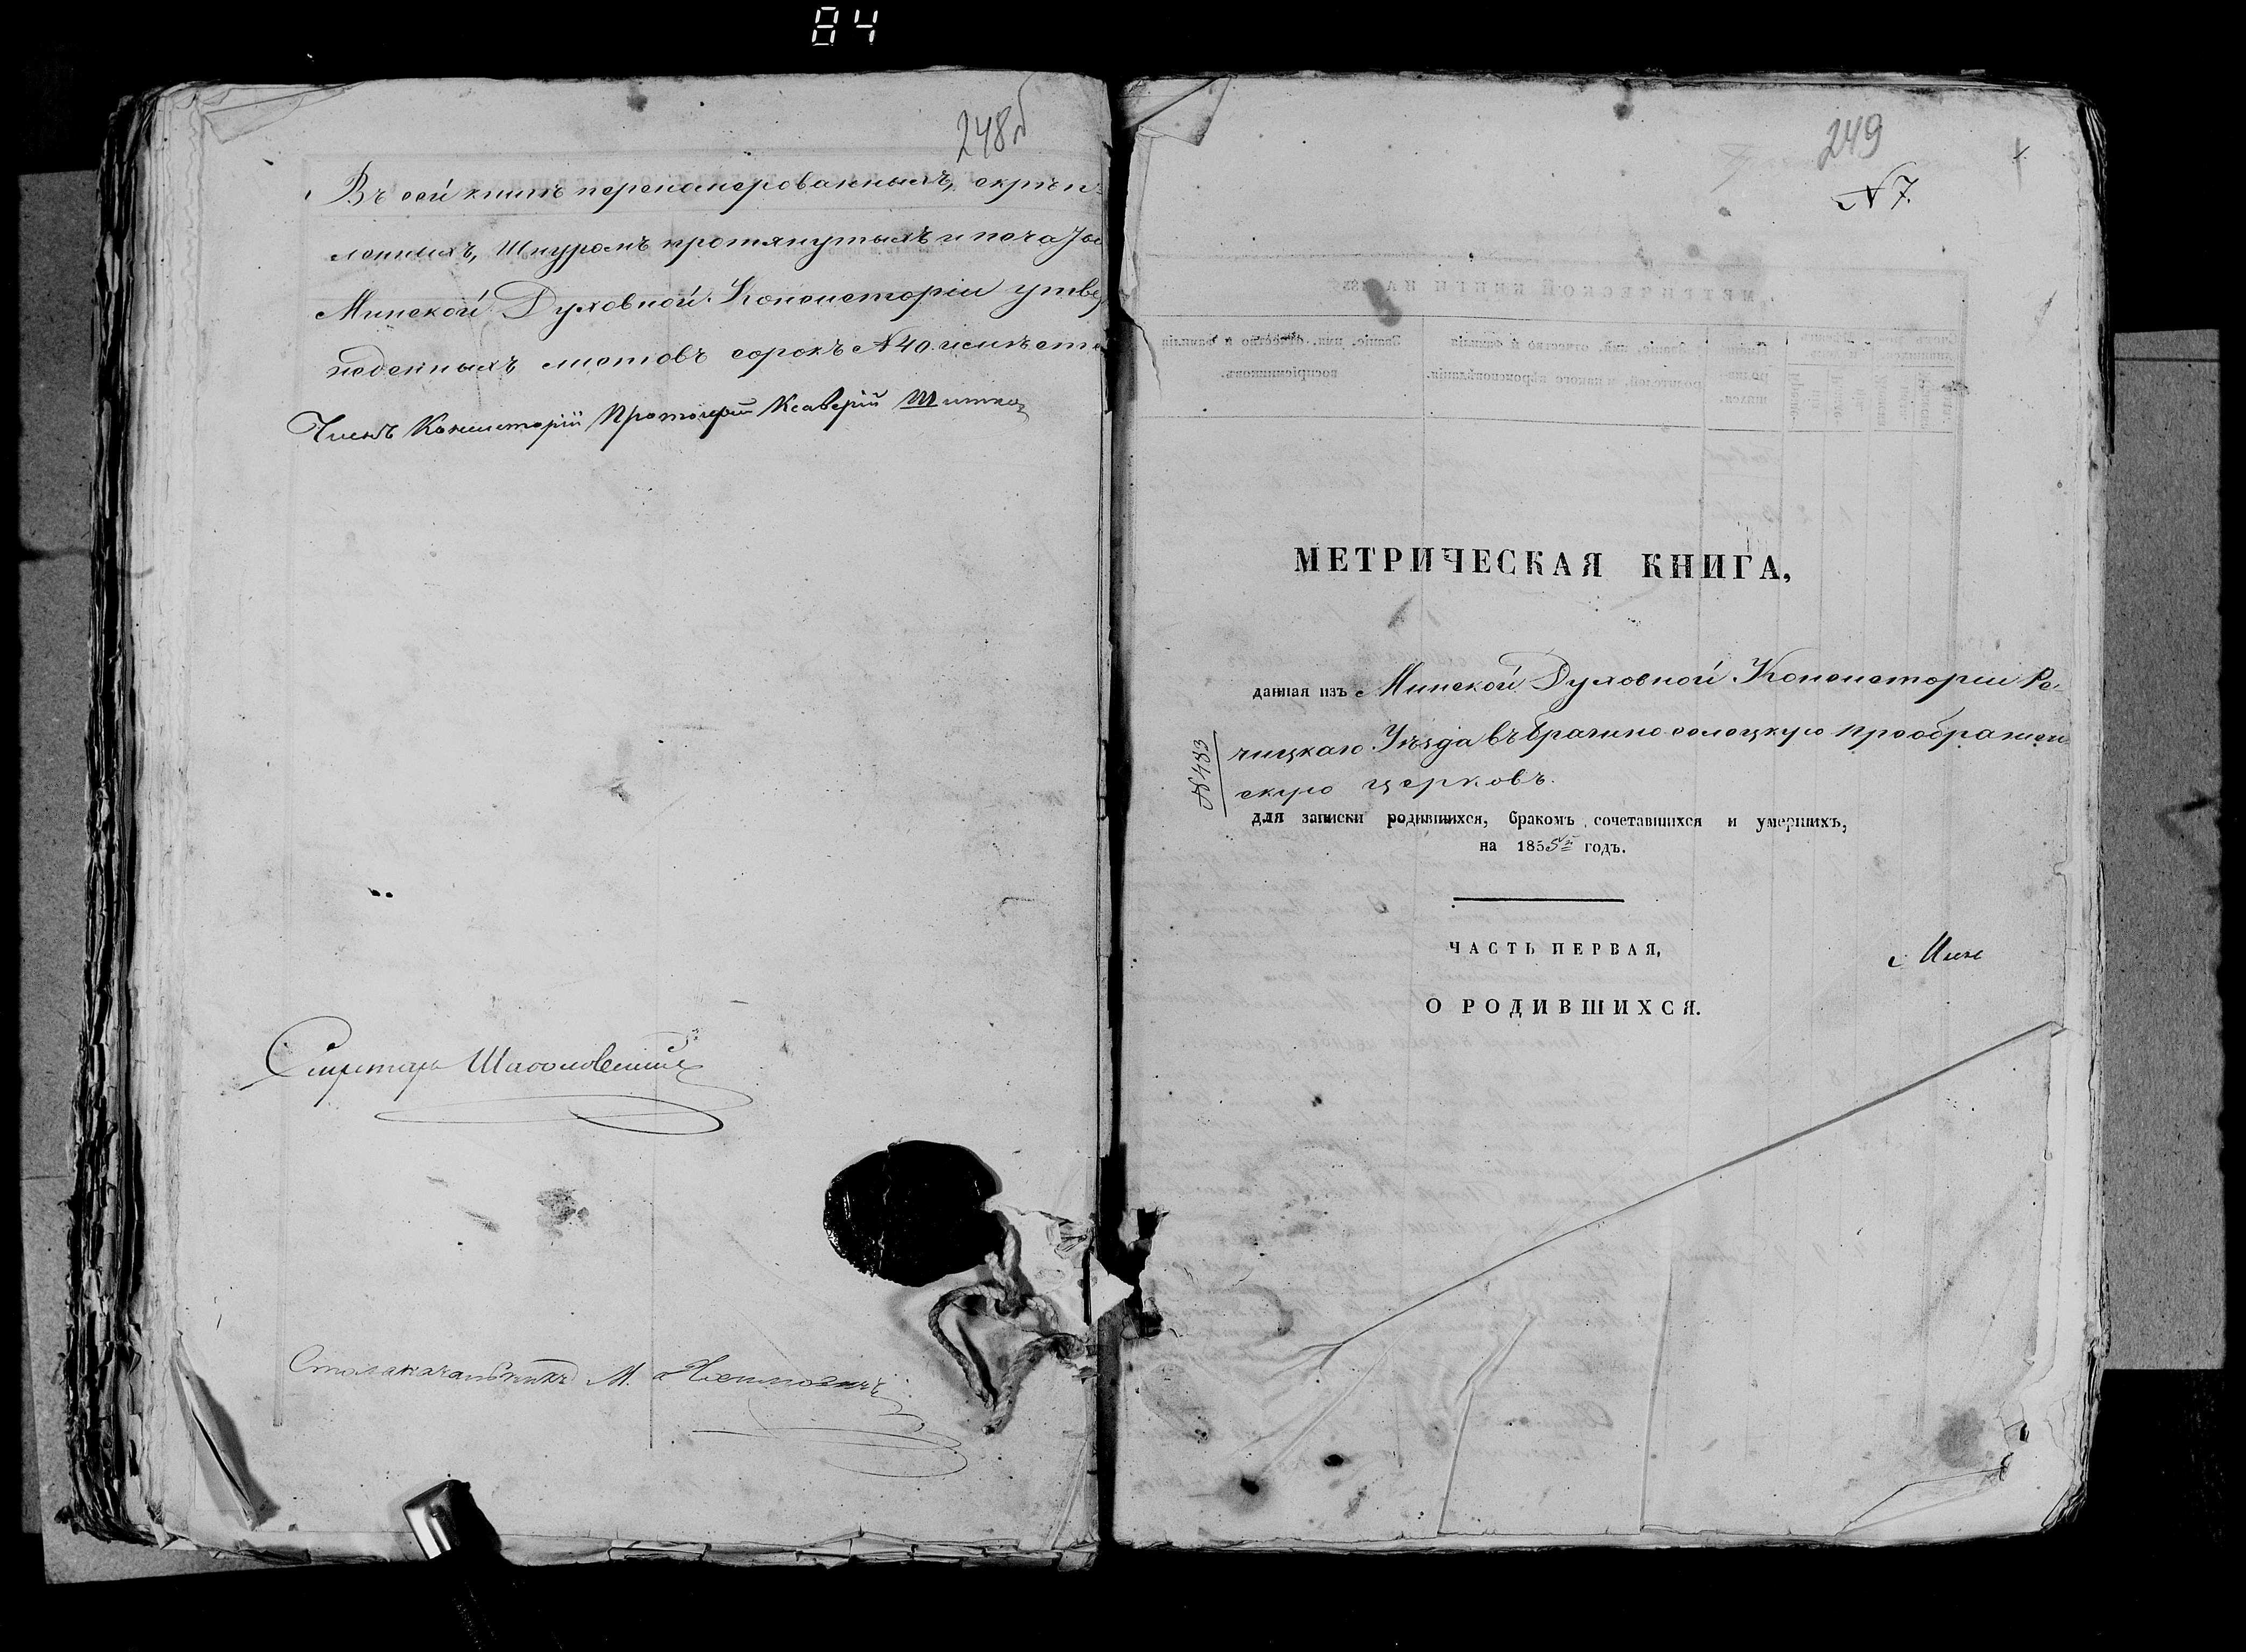 84
248об
Въ сей книгѣ перенумерованныхъ, скрѣп-
ленныхъ, шнуромъ протянутыхъ и печатью
Минской Духовной Консисторіи утвер
жденныхъ листовъ сорокъ №40.
Членъ Консисторіи Протоіерей Ксаверій
Секретарь
Столоначальникъ М.
249
№ 7.
МЕТРИЧЕСКАЯ КНИГА,
данная изъ Минской Духовной Консисторіи Рѣ-
чицкаго Уѣзда въ Брагино-селецкую Преображен
скую церковь.
№ 483
для записки родившихся, бракомъ сочетавшихся и умершихъ,
на 1855й годъ.
ЧАСТЬ ПЕРВАЯ,
О РОДИВШИХСЯ.